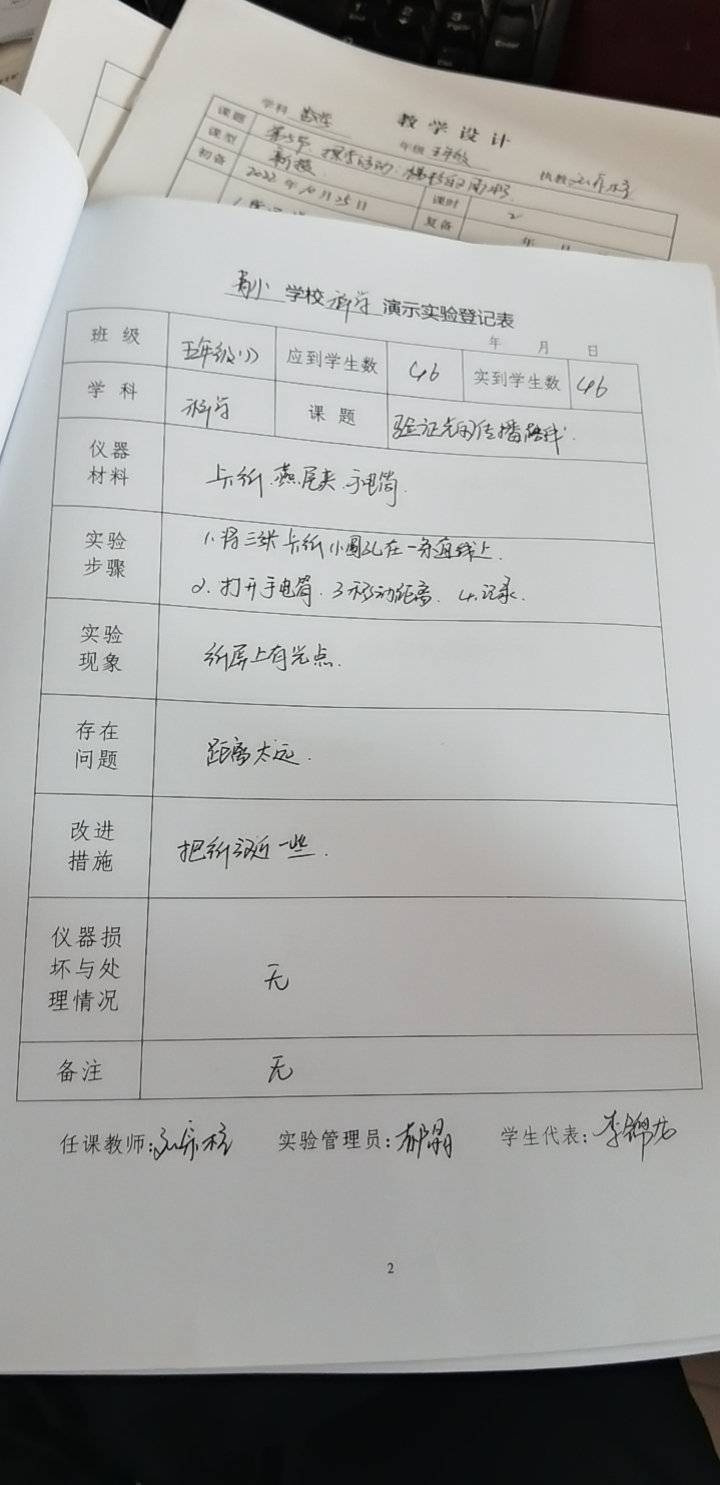 教 学 设 计
学科 数学 年级 五年级 执教
课题 第5节 探索活动：梯形的面积
课型 新授 课时 2
初备 2022年10月25日 复备 年 月
学校 科学 演示实验登记表
年 月 日
班 级 五年级(1) 应到学生数 46 实到学生数 46
学 科 科学 课 题 验证光的传播路线.
仪器
材料
卡纸.燕尾夹.手电筒.
实验
步骤
1.将三张卡纸小圆孔在一条直线上.
2.打开手电筒. 3移动距离. 4.记录.
实验
现象
纸屏上有光点.
存在
问题
距离太远.
改进
措施
把纸 近一些.
仪器损
坏与处
理情况
无
备注 无
任课教师: 实验管理员: 学生代表:李锦龙
2